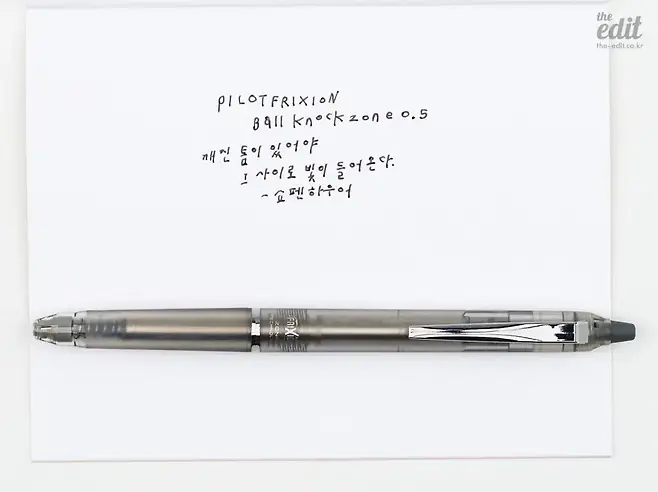 the
edit
the-edit.co.kr
PILOT FRIXION
Ball knock zone 0.5
깨진 틈이 있어야
그 사이로 빛이 들어온다.
- 쇼펜하우어
ZONE